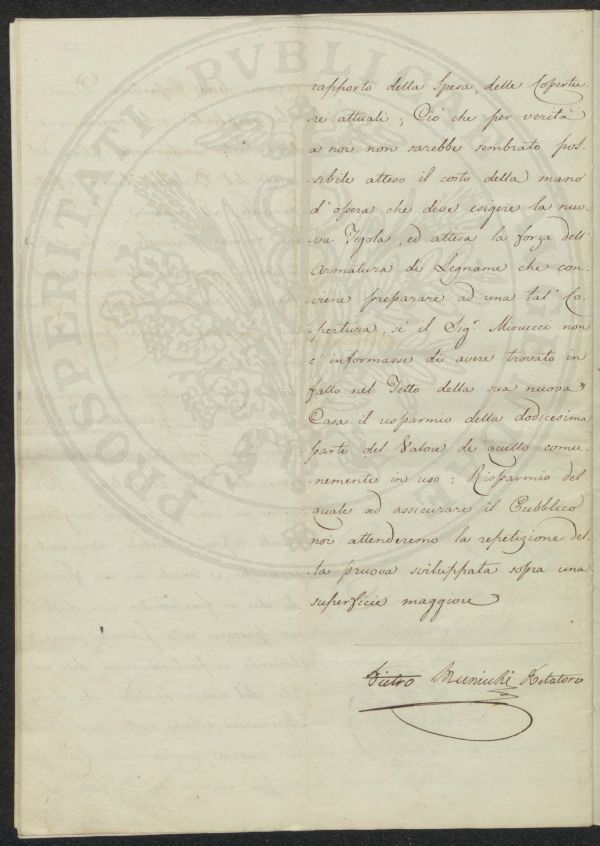 rapporto della Spesa, delle Copertu-
-re attuali; Ciò che per verità
a noi non sarebbe sembrato pos-
-sibile atteso il costo della mano
d'opera che deve esigere la nuo-
-va Tegola, ed attesa la forza dell'
Armatura di Legname che con-
-viene preparare ad una tal' Co-
-pertura, se il Sigr. Minucci non
c'informasse di avere trovato in
fatto nel Tetto della sua nuova
Casa il risparmio della dodicesima
parte del Valore di quello comu-
-nemente in uso; Risparmio del
quale ad assicurare il Pubblico
noi attenderemo la repetizione del-
-la pruova sviluppata sopra una
superficie maggiore
Pietro Relatore
PROSPERITATI PVBLICAE